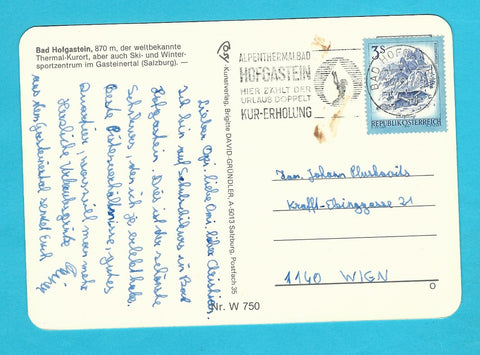 Bad Hofgastein, 870 m, der weltbekannte
Thermal-Kurort, aber auch Ski- und Winter-
sportzentrum im Gasteinertal (Salzburg). —
Lieber Opi, liebe Omi, liebe
Ich bin auf Schulschikurs in Bad
Hofgastein. Dies ist der schönste
Schikurs, den ich je erlebt habe.
Beste Pistenverhältnisse, gutes
Quartier, was will man mehr
Herzliche Urlaubsgrüße
aus dem Gasteinertal sendet Euch
Kunstverlag, Brigitte DAVID-GRÜNDLER, A-5013 Salzburg, Postfach 35
Nr. W 750
ALPENTHERMALBAD
HOFGASTEIN
HIER ZÄHLT DER
URLAUB DOPPELT
KUR-ERHOLUNG
BAD HOFG
3 S
REPUBLIK ÖSTERREICH
Fam. Johann
Krafft-Ebinggasse 21
1140 WIEN